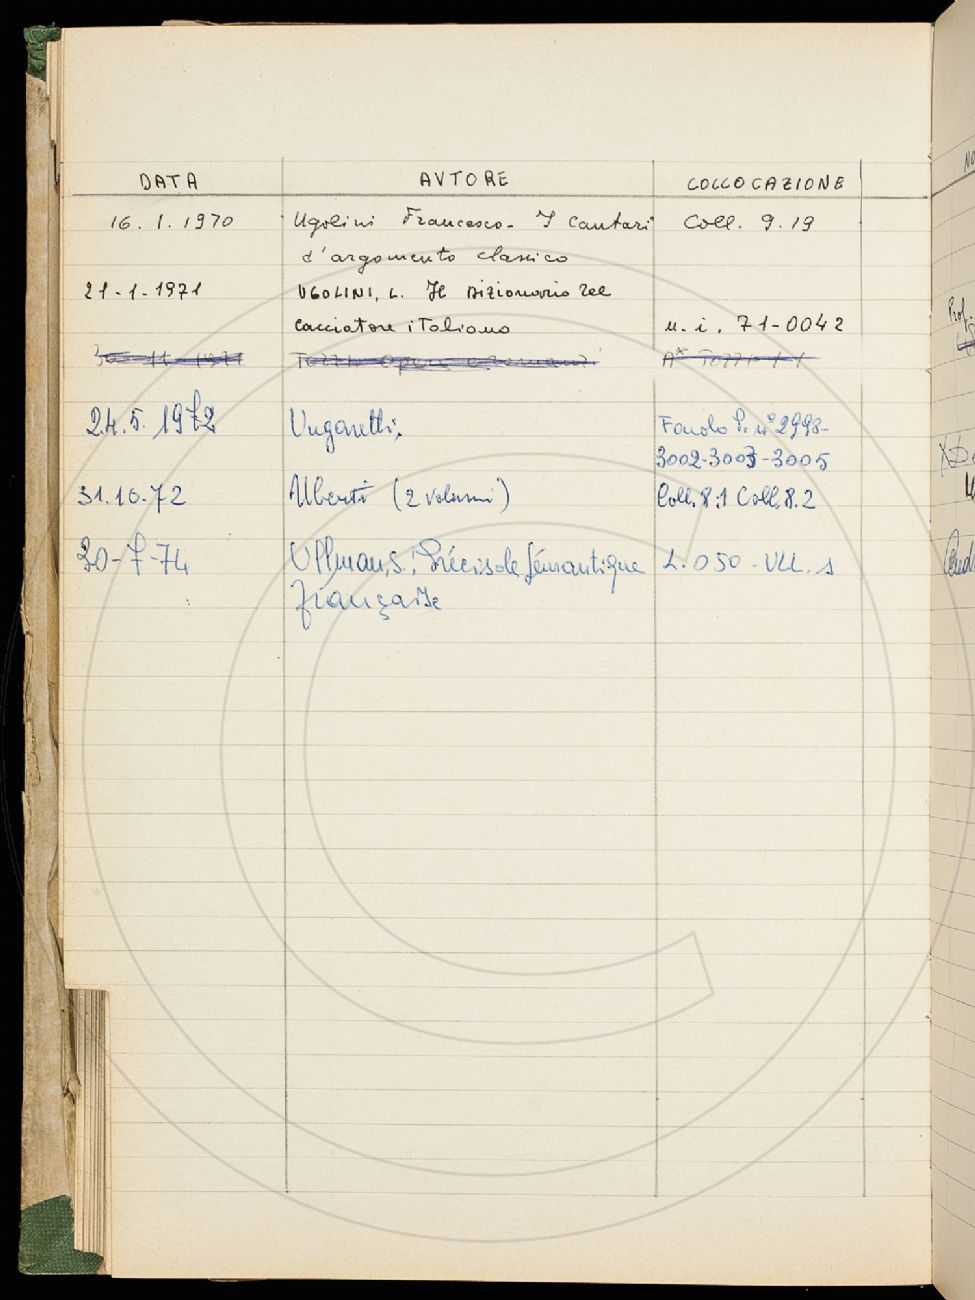 DATA AVTORE COLLOCAZIONE
16.1.1970 Ugolini Francesco - I Cantari Coll. 9.19
d'argomento classico
21-1-1971 UGOLINI, L. Il Dizionario del
cacciatore italiano n.i. 71-0042
Tozzi Opere A* Tozzi 1.1
24.5.1972 Ungaretti. Fondo P. n° 2998-
3002-3003-3005
31.10.72 Alberti (2 volumi) Coll. 8.1 Coll. 8.2
30-7-74 Ullman, S.; Précis de Sémantique L.050-ULL. 1
française